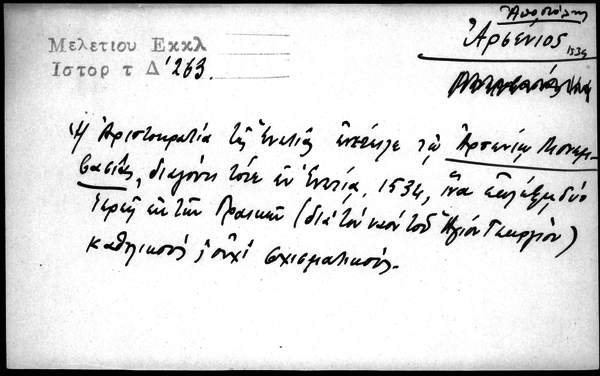 Ἀποστόλης
Ἀρσένιος
1534
Μελετιου Εκκλ
Ιστορ τ Δ' 263.
Ἡ Ἀριστοκρατία τῆς Ἑνετίας τῷ Ἀρσενίῳ Μονεμ-
βασίας, διαγόντι τότε ἐν Ἑνετίᾳ, 1534, ἵνα ἐκλέξῃ δύο
Ἱερεῖς ἐκ τῶν Γραικῶν (διὰ τὸν ναὸν τοῦ Ἁγίου Γεωργίου)
καθολικοὺς ἢ οὐχὶ σχισματικούς.